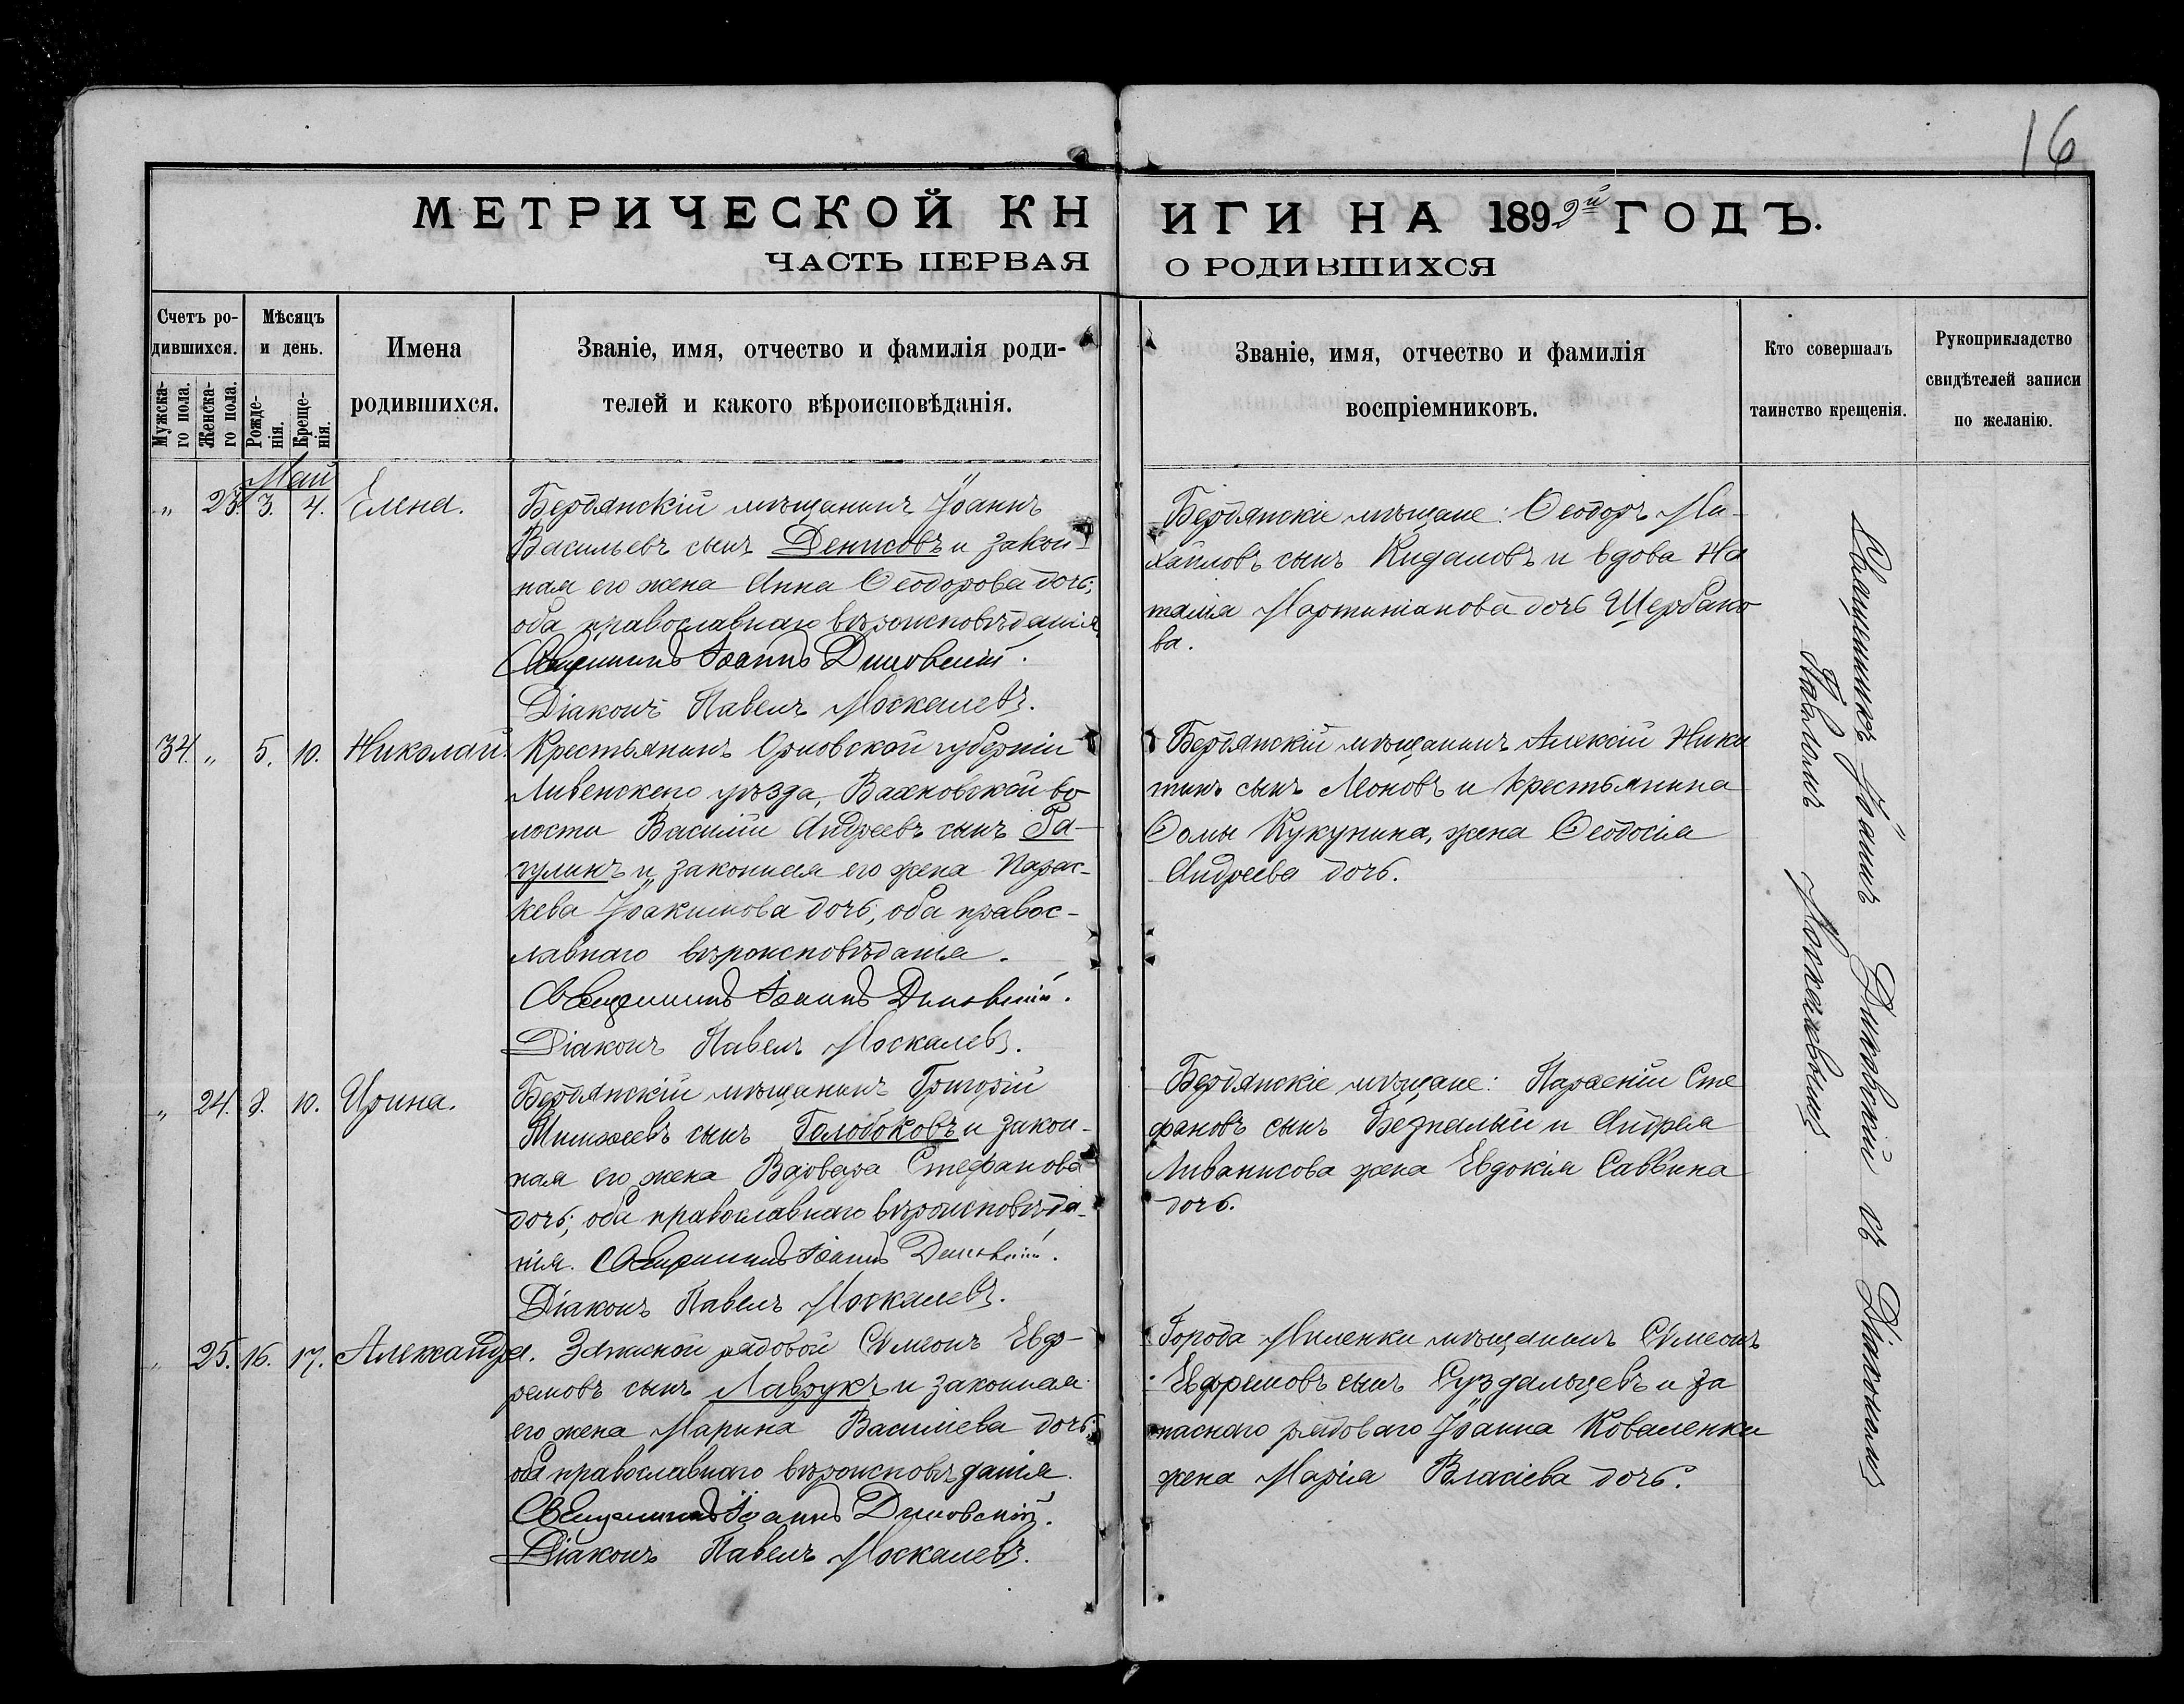 16
МЕТРИЧЕСКОЙ КНИГИ НА 1892й ГОДЪ.
ЧАСТЬ ПЕРВАЯ О РОДИВШИХСЯ
Счетъ родившихся.
Мужскаго пола.
Женскаго пола.
Мѣсяцъ и день.
Рожденія.
Крещенія.
Имена
родившихся.
Званіе, имя, отчество и фамилія роди-
телей и какого вѣроисповѣданія.
Званіе, имя, отчество и фамилія
воспріемниковъ.
Кто совершалъ
таинство крещенія.
Рукоприкладство
свидѣтелей записи
по желанію.
Май
„ 23. 3. 4. Елена.
Бердянскій мѣщанинъ Іоаннъ
Васильевъ сынъ Денисовъ и закон-
ная его жена Анна Ѳеодорова дочь;
оба православнаго вѣроисповѣданія
Священникъ Іоаннъ
Діаконъ Павелъ Москалевъ.
Бердянскіе мѣщане: Ѳеодоръ Ми-
хайловъ сынъ Кидаловъ и вдова На
талія Мартиніанова дочь Щербако
ва.
34. „ 5. 10. Николай.
Крестьянинъ Орловской губерніи
Ливенскаго уѣзда, Вахновской во
лости Василій Андреевъ сынъ Га-
гулинъ и законная его жена Парас-
кева Іоакимова дочь; оба правос-
лавнаго вѣроисповѣданія.
Священникъ Іоаннъ
Діаконъ Павелъ Москалевъ.
Бердянскій мѣщанинъ Алексій Ники
тинъ сынъ Леоновъ и крестьянина
Ѳомы Кукунина, жена Ѳеодосія
Андреева дочь.
„ 24. 8. 10. Ирина.
Бердянскій мѣщанинъ Григорій
Тимоѳеевъ сынъ Голобоковъ и закон-
ная его жена Варвара Стефанова
дочь; оба православнаго вѣроисповѣда-
нія. Священникъ Іоаннъ
Діаконъ Павелъ Москалевъ.
Бердянскіе мѣщане: Парѳеній Сте
фановъ сынъ Безпалый и Андрея
Ливанисова жена Евдокія Саввина
дочь.
„ 25. 16. 17. Александра.
Запасной рядовой Сѵмеонъ Евф-
ремовъ сынъ Лаврукъ и законная
его жена Марина Василіева дочь;
оба православнаго вѣроисповѣданія.
Священникъ Іоаннъ
Діаконъ Павелъ Москалевъ.
Города мѣщанинъ Сѵмеонъ
Евфремовъ сынъ Суздальцевъ и за
паснаго рядоваго Іоанна Коваленки
жена Марія Власіева дочь.
Священникъ Іоаннъ съ Діакономъ
Павломъ Москалевымъ